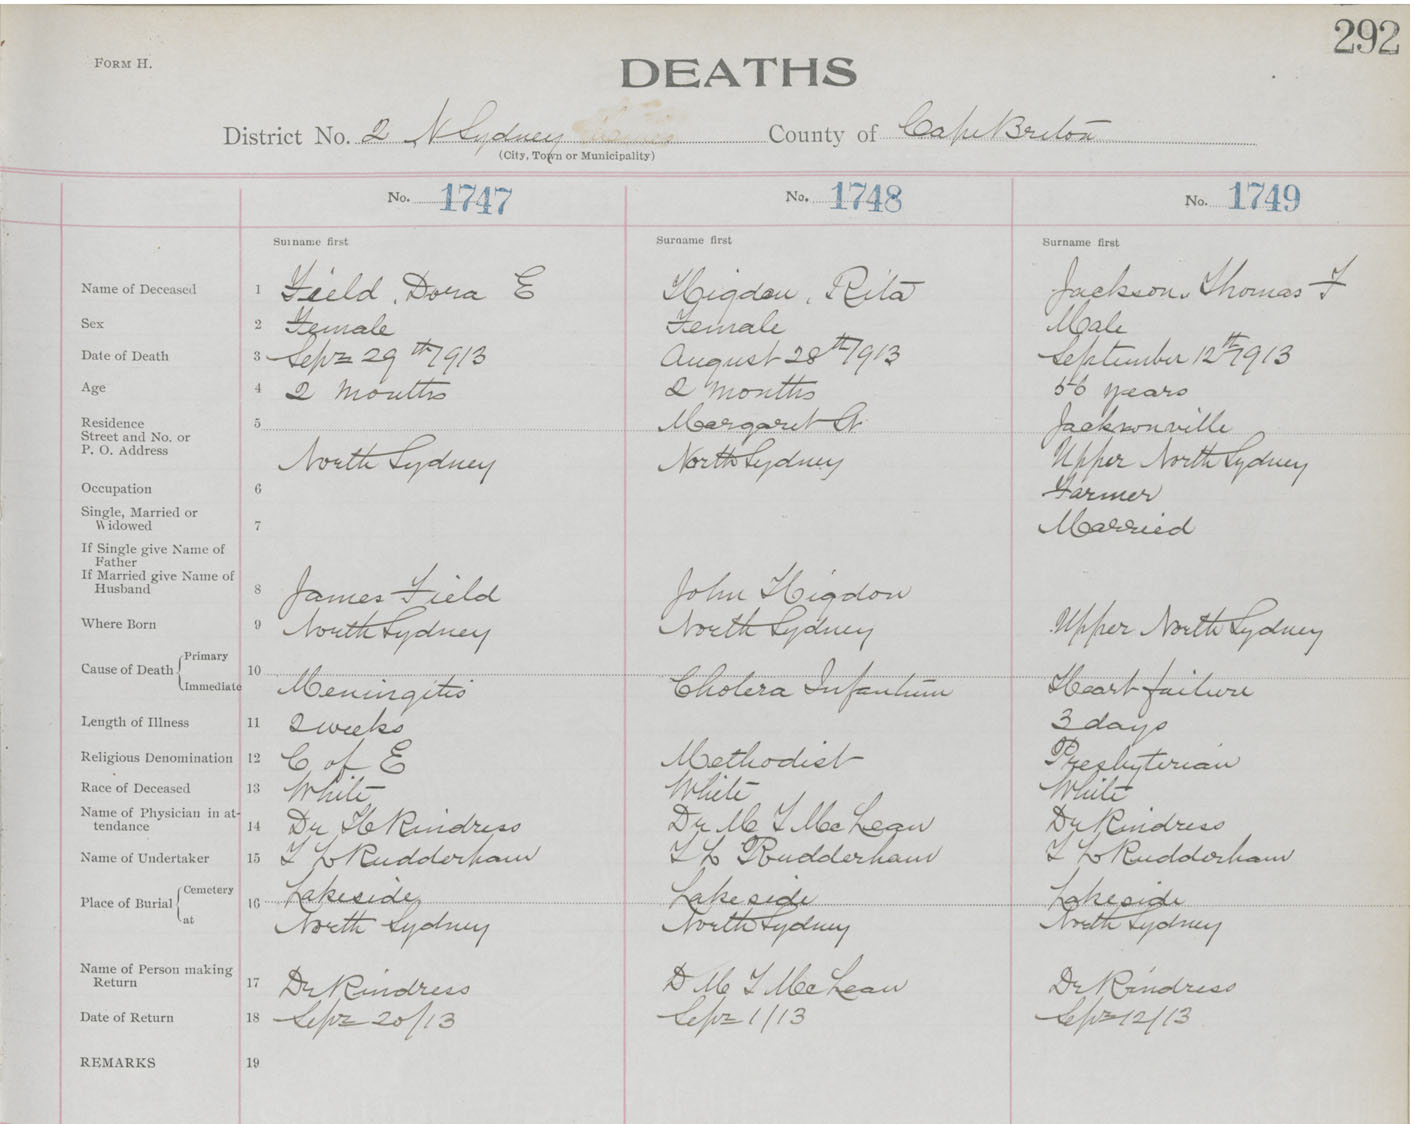 292
FORM H.
DEATHS
District No. 2 N Sydney County of Cape Breton
(City, Town or Municipality)
No. 1747 No. 1748 No. 1749
Surname first Surname first Surname first
Name of Deceased 1 Field, Dora E Higdon, Rita Jackson, Thomas F
Sex 2 Female Female Male
Date of Death 3 Sept 29th 1913 August 28th 1913 September 12th 1913
Age 4 2 months 2 months 56 years
Residence 5 Margaret St Jacksonville
Street and No. or
P. O. Address North Sydney North Sydney Upper North Sydney
Occupation 6 Farmer
Single, Married or
Widowed 7 Married
If Single give Name of
Father
If Married give Name of
Husband 8 James Field John Higdon
Where Born 9 North Sydney North Sydney Upper North Sydney
Cause of Death Primary 10
Immediate Meningitis Cholera Infantum Heart failure
Length of Illness 11 2 weeks 3 days
Religious Denomination 12 C of E Methodist Presbyterian
Race of Deceased 13 White White White
Name of Physician in at-
tendance 14 Dr H Rindress Dr M T McLean Dr Rindress
Name of Undertaker 15 T L Rudderham T L Rudderham T L Rudderham
Place of Burial Cemetery 16 Lakeside Lakeside Lakeside
at North Sydney North Sydney North Sydney
Name of Person making
Return 17 Dr Rindress D M T McLean Dr Rindress
Date of Return 18 Sept 20/13 Sept 1/13 Sept 12/13
REMARKS 19